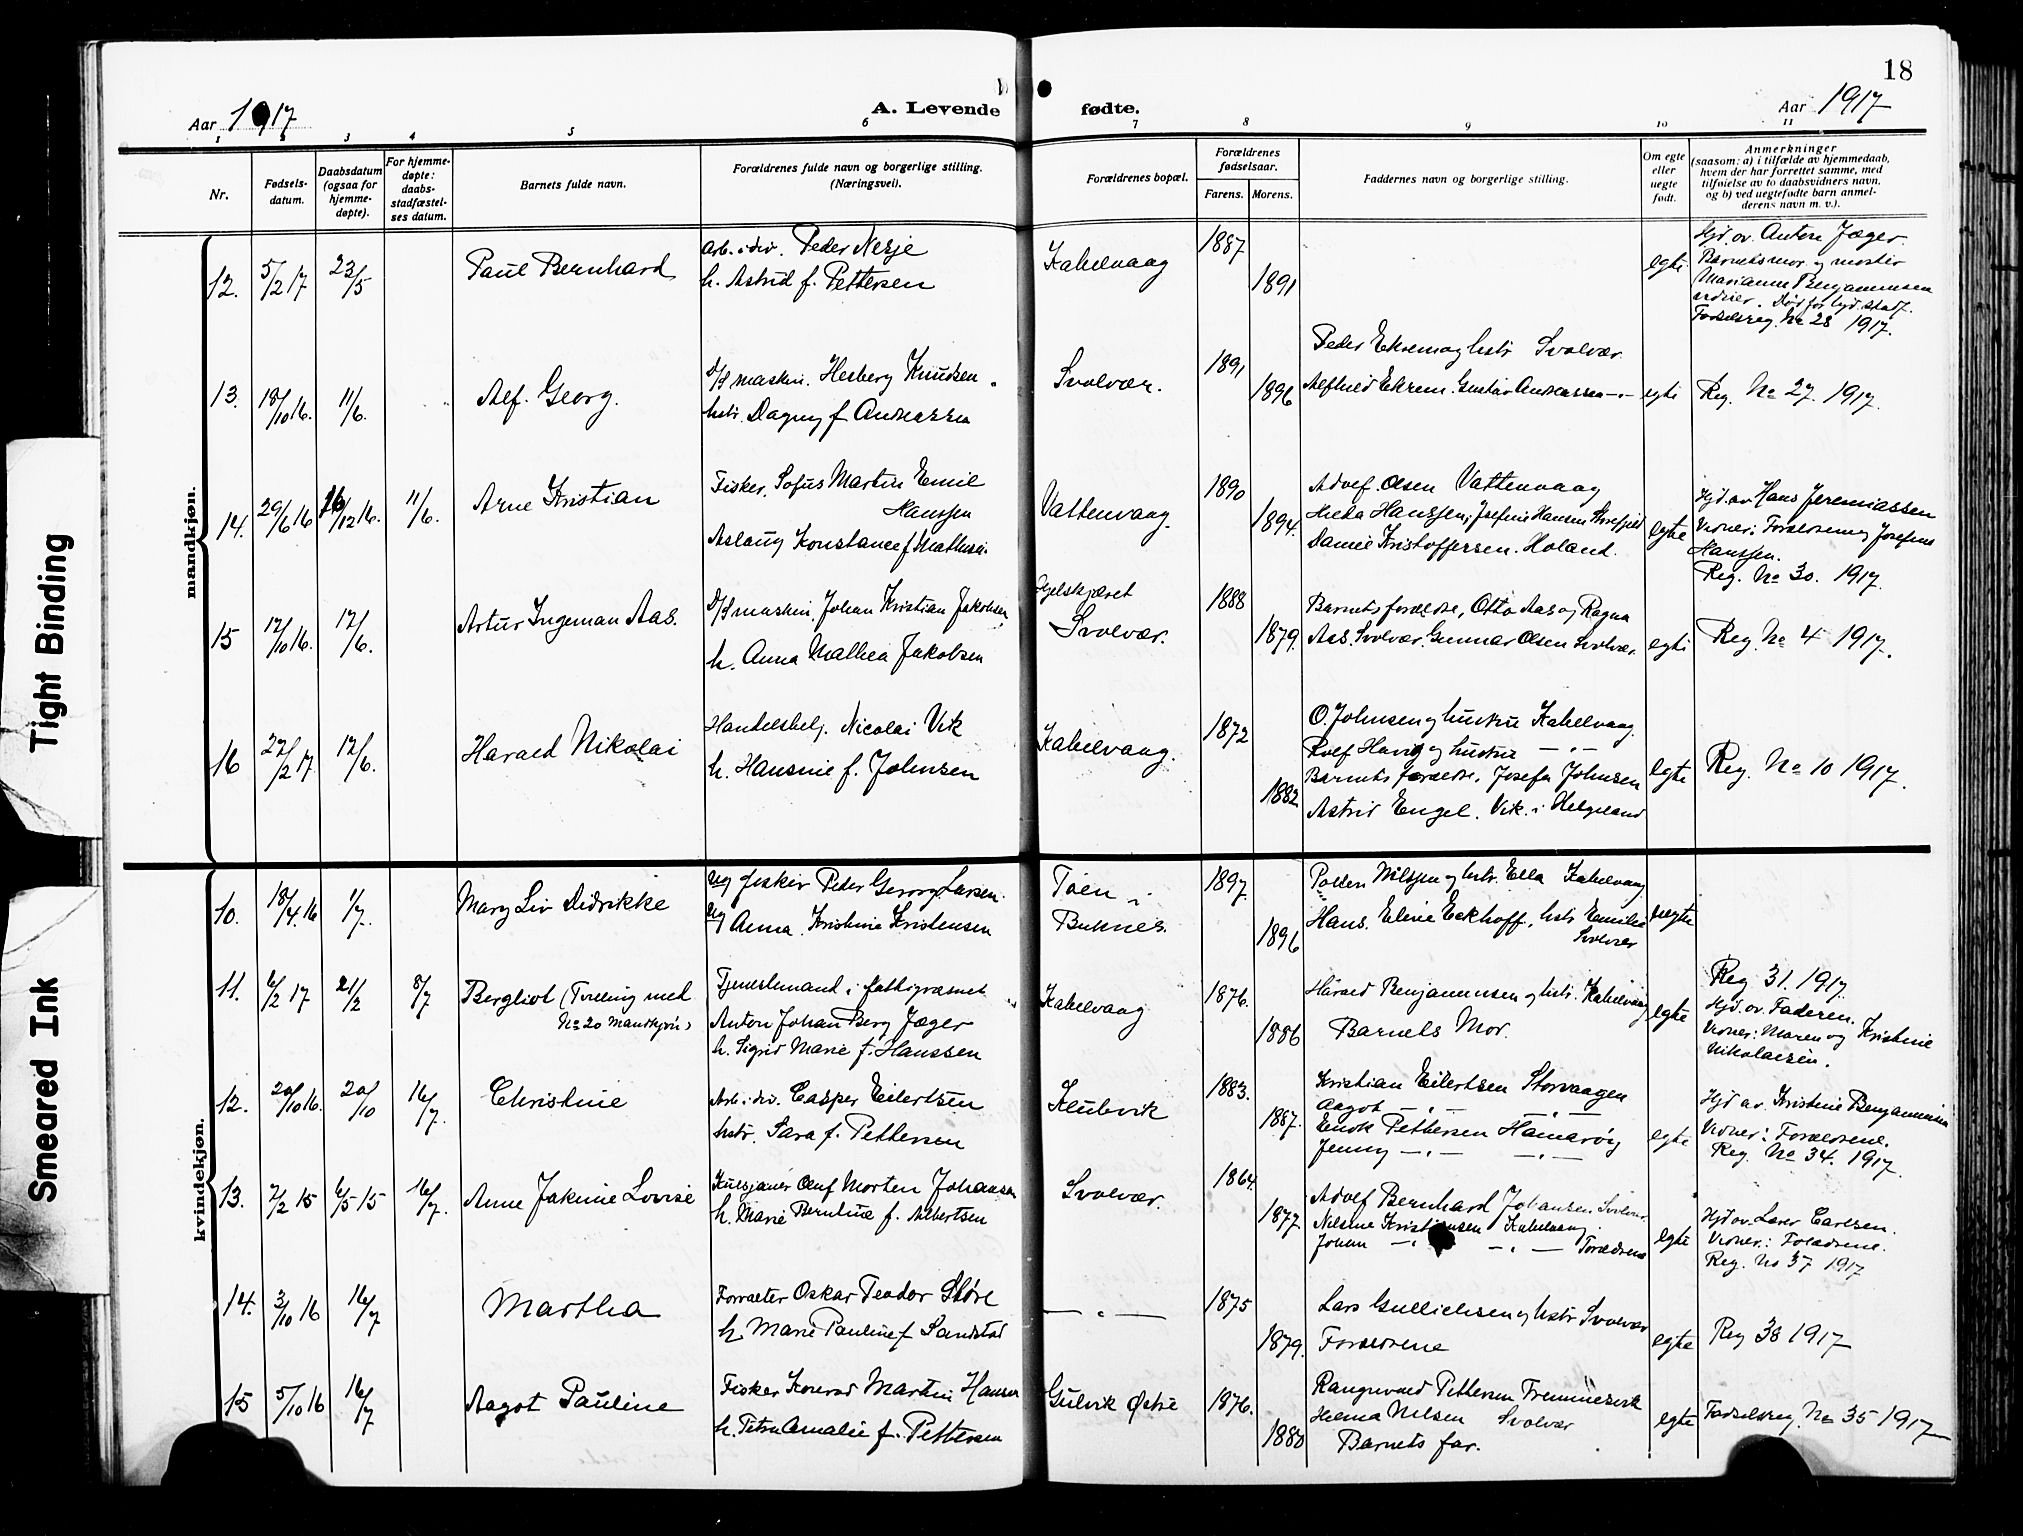 18
Aar 1917
A. Levende
fødte.
Aar 1917
1 2 3 4 5 6 7 8 9 10 11
Nr.
Fødsels-
datum.
Daabsdatum
(ogsaa for
hjemme-
døpte).
For hjemme-
døpte:
daabs-
stadfæstel-
ses datum.
Barnets fulde navn.
Forældrenes fulde navn og borgerlige stilling.
(Næringsvei).
Forældrenes bopæl.
Forældrenes
fødselsaar.
Farens. Morens.
Faddernes navn og borgerlige stilling.
Om egte
eller
uegte
født.
Anmerkninger
(saasom: a) i tilfælde av hjemmedaab,
hvem der har forrettet samme, med
tilføielse av to daabsvidners navn,
og b) ved uegtefødte barn anmel-
derens navn m. v.).
mandkjøn.
12. 5/2 17 23/5 Paul Bernhard
Arb. i div. Peder Nesje
h. Astrid f. Pettersen
Kabelvaag 1887 1891 egte
Hjd. ov. Anton Jæger.
Barnets mor og moster
Marianne Benjaminsen
vidner. Død før hjd. stadf.
Fødselsreg. No 28 1917.
13. 18/10 16. 11/6. Alf Georg.
D/S maskin. Herberg Knudsen.
hstr. Dagny f Andreassen
Svolvær. 1891 1896
Peder Ekrem og hstr Svolvær.
Alfhild Ekrem. Gustav Andreassen —"— egte
Reg. No 27. 1917.
14. 29/6 16 26/12 16. 11/6. Arne Kristian
Fisker. Sofus Martin Emil
Hanssen
Aslaug Konstance f Mathisen.
Vattenvaag. 1890 1894.
Advef. Olsen Vattenvaag
Hilda Hanssen; Josefine Hansen
Daniel Kristoffersen. Holand. egte
Hjd. av Hans Jeremiassen
Vidner: Forældrene og Josefine
Hanssen.
Reg. No 30. 1917.
15 12/10 16. 17/6. Artur Ingeman Aas.
D/S maskin. Johan Kristian Jakobsen
h. Anna Mathea Jakobsen
Hjelskjæret
Svolvær. 1888 1879.
Barnets forældre, Otto Aas og Ragna
Aas. Svolvær. Gunnar Olsen Svolvær. egte
Reg. No 4 1917.
16 27/2 17. 17/6. Harald Nikolai
Handelsbetj. Nicolai Vik
h. Hansine f. Johnsen
Kabelvaag. 1872 1882
O. Johnsen og hustru Kabelvaag.
Rolf Havig og hustru —"—
Barnets forældre, Josefa Johnsen
Astrid Engel. Vik. i Helgeland
egte
Reg. No 10 1917.
kvindekjøn.
10. 18/4. 16 1/7. Mary Liv Didrikke
Ug fisker Peder Georg Larsen.
Ug Anna. Kristine Kristensen
Tøen i
Buknes. 1897. 1896
Nilssen og hstr. Ella Kabelvaag
Hans. Eline Eckhoff, hstr Emilie
Svolvær uegte
11. 6/2 17 21/2 8/7 Bergliot (Tvilling med
No 20 Mandkjøn)
Tjenestemand i fattigvæsnet
Anton Johan Berg Jæger
h. Sigrid Marie f. Hanssen
Kabelvaag 1876. 1886
Harald Benjaminsen og hstr. Kabelvaag
Barnets Mor. egte
Reg 31. 1917
Hjd. ov. Faderen.
Vidner: Maren og Kristine
Nikolaisen.
12. 20/10 16. 20/10 16/7. Christine
Arb. i div. Casper Eilertsen
hstr. Sara f. Pettersen
Klubvik 1883. 1887.
Kristian Eilertsen Storvaagen
Aagot —"— —"—
Enok Pettersen Hamarøy
Jenny —"— —"—
egte
Hjd av. Kristine Benjaminsen
Vidner: Forældrene.
Reg. No 34. 1917.
13. 7/2 15 6/5 15 16/7. Anne Jakine Lovise
Kulsjauer Oluf Morten Johansen
h. Marie Berntine f. Albertsen
Svolvær. 1864. 1877.
Adolf Bernhard Johansen Svolvær
Nelsine Kristiansen Kabelvaag.
Johan —"— —"— Forældrene egte
Hjd ov. Laver Carlsen.
Vidner: Forældrene.
Reg. No 37 1917
14. 3/10 16 16/7 Martha
Forvalter Oskar Teodor Støre
h. Marie Pauline f Sandstad
—"— 1875 1879.
Lars Gullichsen og hstr Svolvær
Forældrene egte
Reg 38 1917
15 5/10 16 16/7 Aagot Pauline
Fisker Konrad Martin Hansen
h. Petra Amalie f. Pettersen
Gulvik Østre 1876. 1880
Rangvald Pettersen
Helma Nilsen Svolvær
Barnets far.
egte
Fødselsreg. No 35 1917
Tight Binding
Smeared Ink